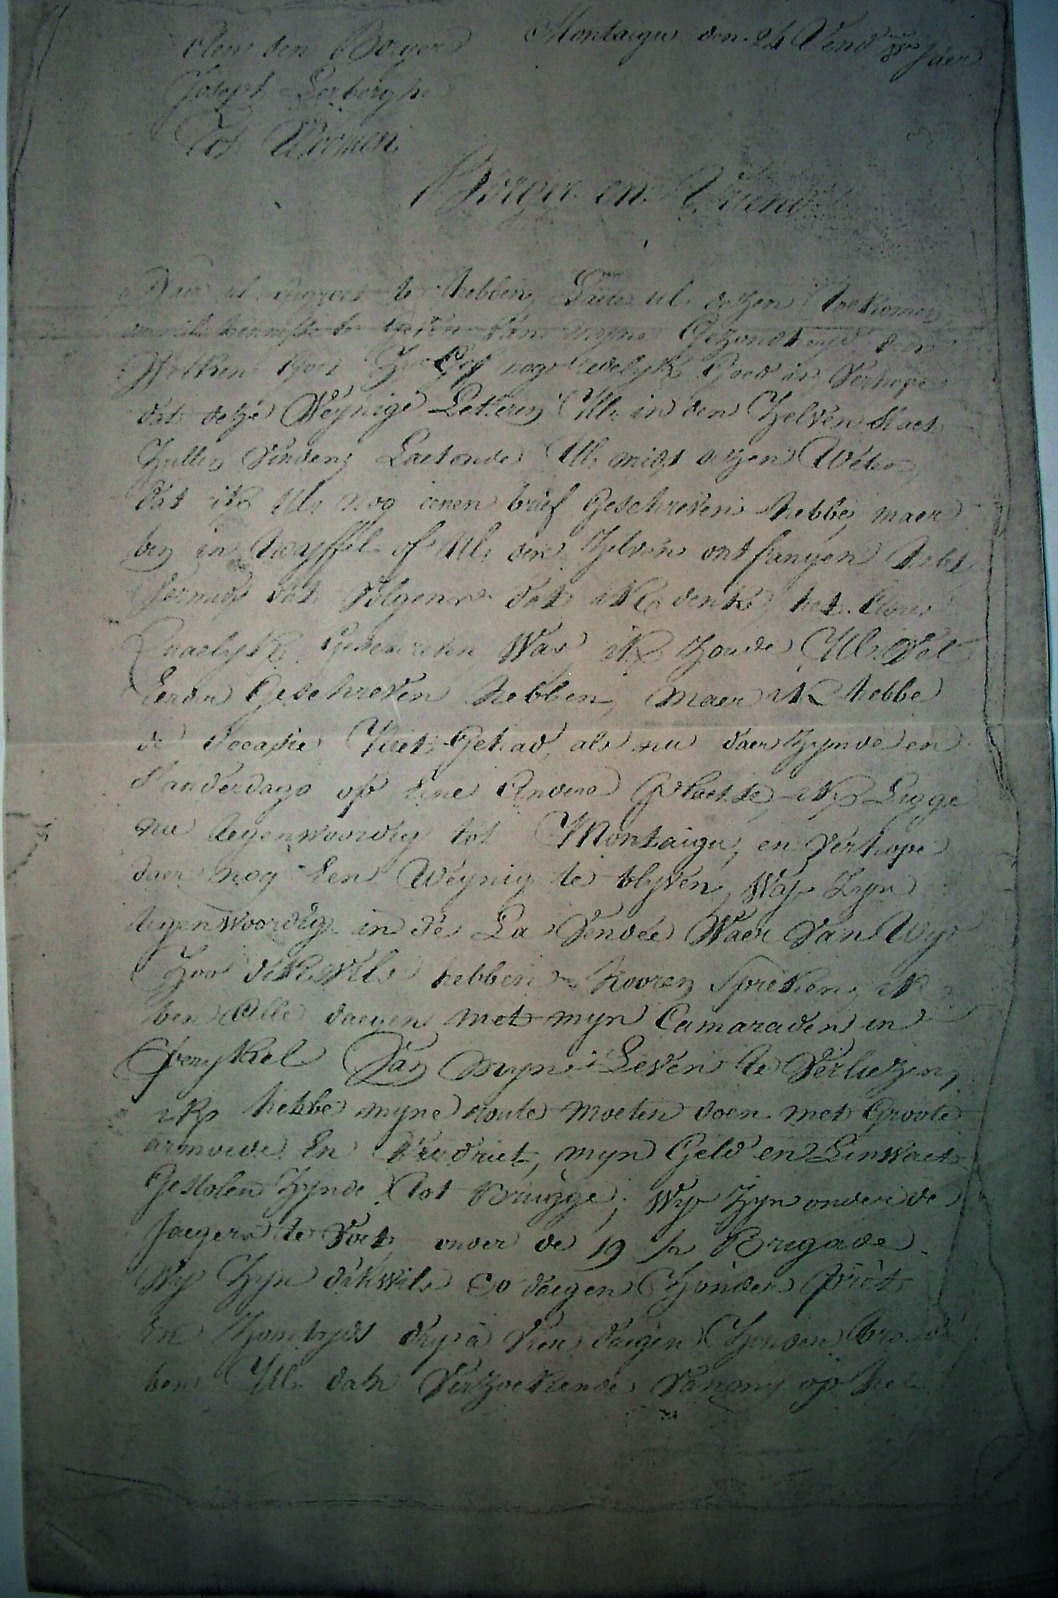 Aen den Borger Montaigu den 24 Vend jaer
Joseph Lerberghe
Tot
Borger en Vriend
te hebben, ul. dezen toekomen
van myne Gezondheyd den
Welken voor nog redelyk Goed is, Verhope
dat deze Weynige Letteren Ul. in den Zelven Staet
Zullen Vinden, Laetende Ul. midts dezen Weten,
dat ik Ul. nog eenen brief Geschreven hebbe, maer
ben in twyffel of Ul. den Zelven ontfangen hebt
dat Volgens dat ik denke, het
qualyk Geschreven Was ik Zoude Ul.
Eerder Geschreven hebben, maer ik hebbe
de occasie Niet Gehad, als nu daer Zynde en
s'anderdags op Eene Andere Plaetse, ik Ligge
nu tegenwoordig tot Montaigu, en Verhope
daer nog Een Weynig te blyven, Wy Zyn
tegenwoordig in de La Vendée Waer Van Wy
Zoo dikwils hebben hooren Spreken, ik
ben Alle daegen met myn Camaraden in
Perykel Van Myn Leven te Verliezen,
ik hebbe myne route moeten doen met Groote
armoede En Verdriet, myn Geld en Linwaet
Gestolen Zynde Tot Brugge, Wy Zyn onder de
Jaegers te Voet onder de 19 Brigade.
Wy Zyn dikwils daegen Zonder
En Zomtyds dry à Vier daegen Zonder brood
ben Ul. dan Verzoekende Van my op het